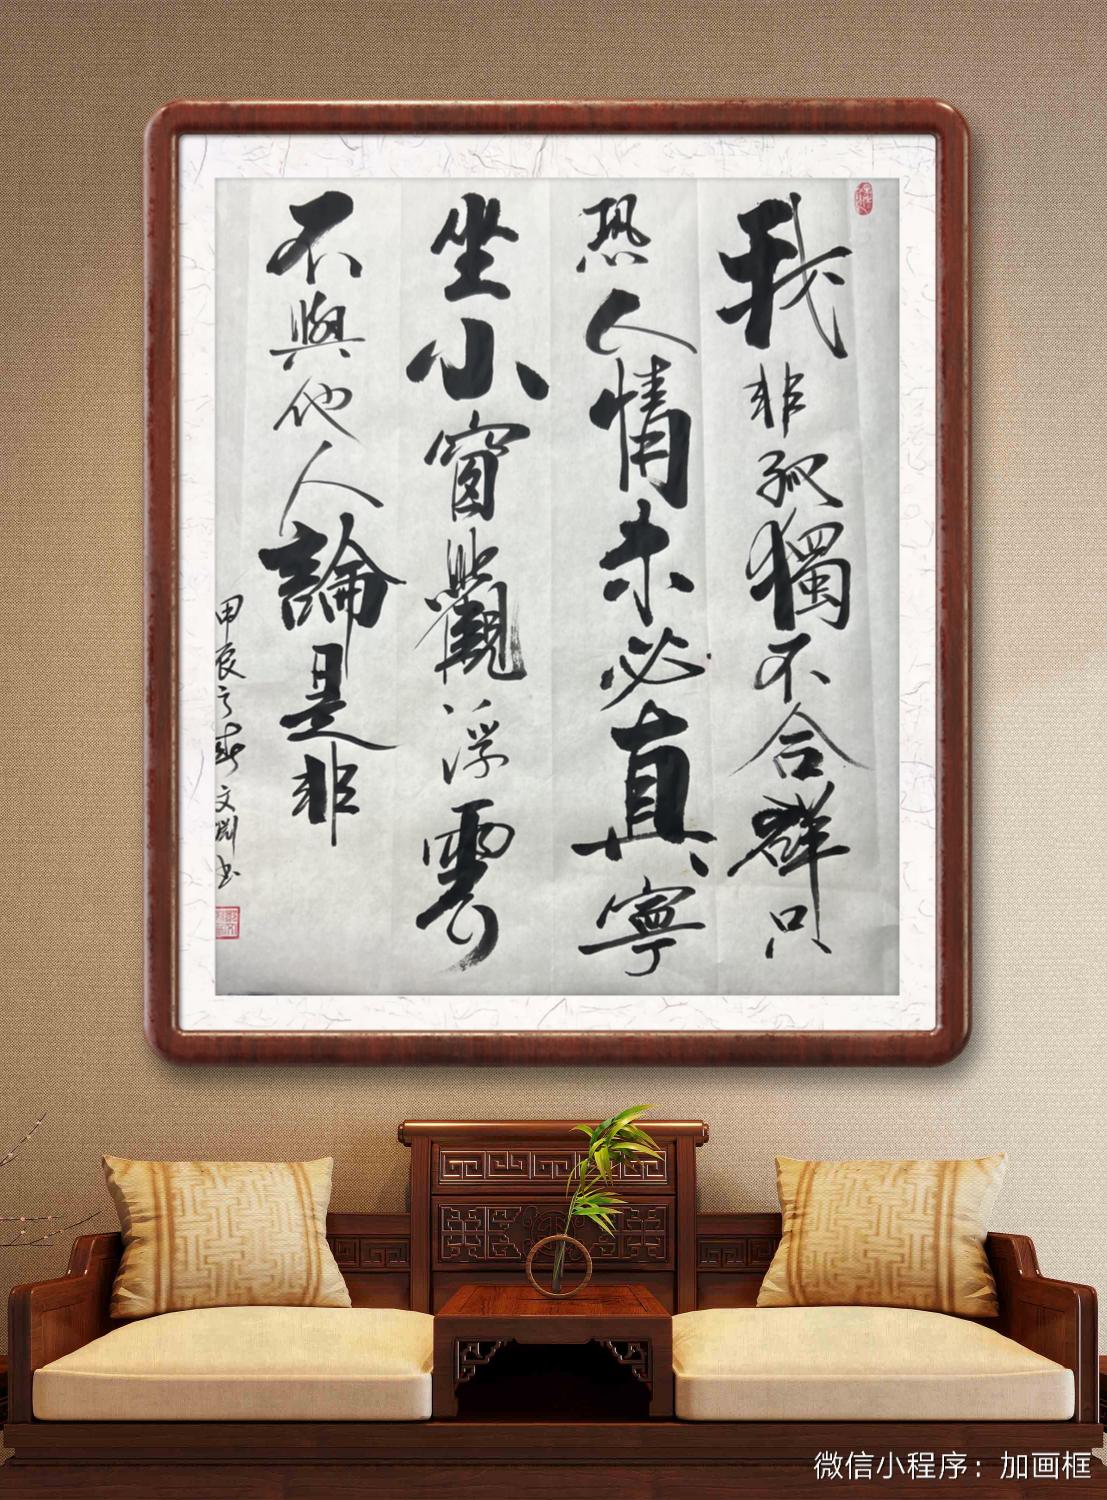 我非孤獨不合群只
恐人情未必真寧
坐小窗觀浮雲
不與他人論是非
甲辰之春文淵书
微信小程序：加画框